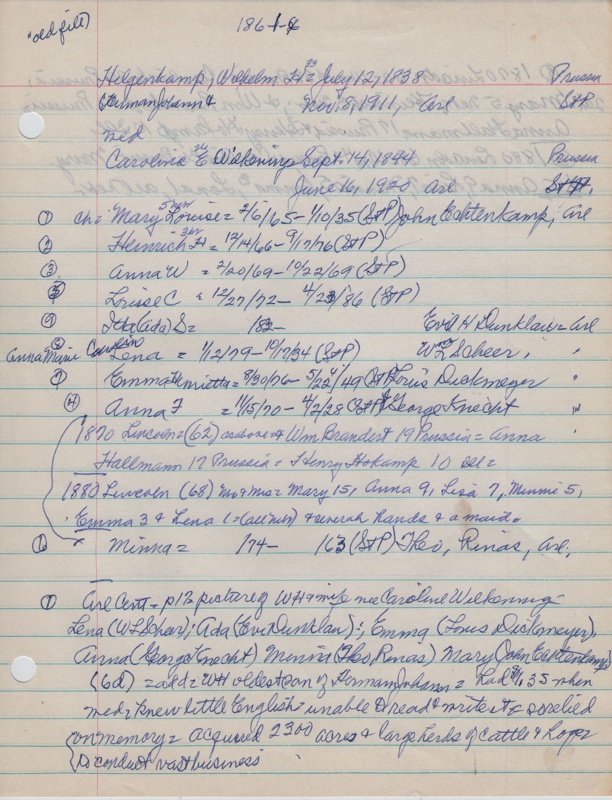 "old file)
1864-6
Hilgenkamp, Wilhelm H = July 12, 1838 Prussia
(HermanJohann & Nov. 8, 1911, Arl StP
med
Caroline E Wilkening Sept. 14, 1844 Prussia
June 16, 1920 Arl StP,
① ch: Mary Louise = 2/6/65 - 1/10/35 (StP) John Echtenkamp, Arl
② Heinrich H = 12/14/66 - 9/17/76 (StP)
③ Anna W = 2/20/69 - 10/22/69 (StP)
⑤ Louise C = 12/27/72 - 4/23/86 (StP)
⑨ Ida (Ada) S = 182- Evil H Dunklau = Arl
⑧ Anna Marie Carolin Lena = 1/12/79 - 10/17/34 (StP) W L Scheer, "
⑦ Emma Henrietta = 8/30/76 - 5/22/49 (StP) Louis Dieckmeyer "
④ Anna F = 11/15/70 - 4/2/28 (StP) George Knecht "
1870 Lincoln = (62) as above & Wm Brandert 19 Prussia = Anna
Hallmann 17 Prussia = Henry Hokamp 10 Ill =
1880 Lincoln (68) Mr & Mrs = Mary 15, Anna 9, Lisa 7, Minni 5,
Emma 3 & Lena 1 = (all Neb) & several hands & a maid.
⑥ Minna = 174- 163 (StP) Theo, Rinas, Arl,
① Arl Cent - p 12 picture of WH & wife nee Caroline Wilkening
Lena (W L Scheer); Ada (Evil Dunklau); Emma (Louis Dickmeyer),
Anna (George Knecht) Minnie (Theo Rinas) Mary (John Echtenkamp)
(6d) = add = WH oldest son of Herman Johann = had $1.35 when
med = knew little English = unable to read & write & so relied
on memory = acquired 2300 acres & large herds of cattle & hogs
to conduct vast business